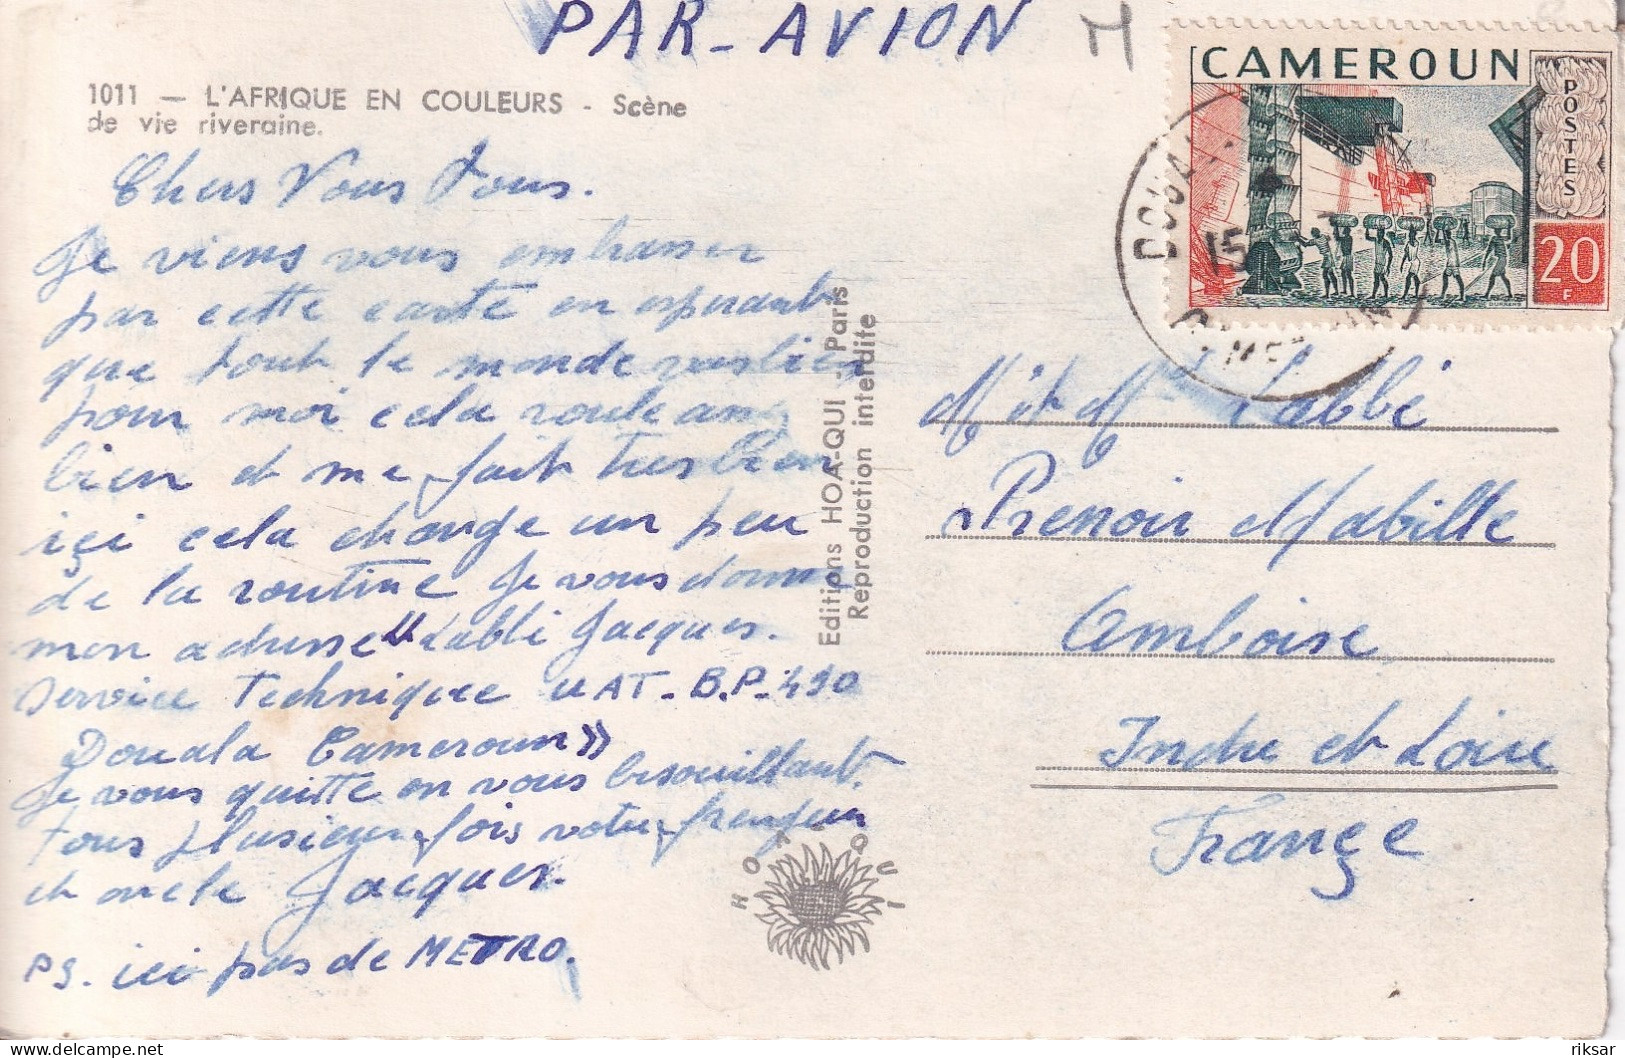 PAR-AVION M
1011 — L'AFRIQUE EN COULEURS - Scène
de vie riveraine.
Chers Vous Tous.
Je viens vous embrasser
par cette carte en esperant
que tout le monde va bien
pour moi cela roule
bien et me fait tres bien
içi cela change un peu
de la routine Je vous donne
mon adresse "Labbé Jacques.
Service Technique UAT-B.P-490
Douala Cameroun»
Je vous quitte en vous bisouillant
tous plusieurs fois votre frangin
et oncle Jacques.
PS. ici pas de METRO.
Editions HOA-QUI - Paris
Reproduction interdite
HOA QUI
CAMEROUN
POSTES
20
F
DOUALA
15
CAMEROUN
M et M Labbé
Prenoir Mabille
Amboise
Indre et Loire
Françe
riksar